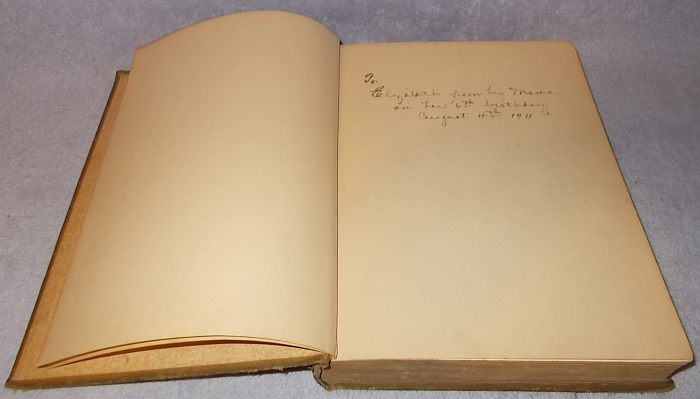 To.
Elizabeth from her Mama
on her 6th birthday
August 4th 1911